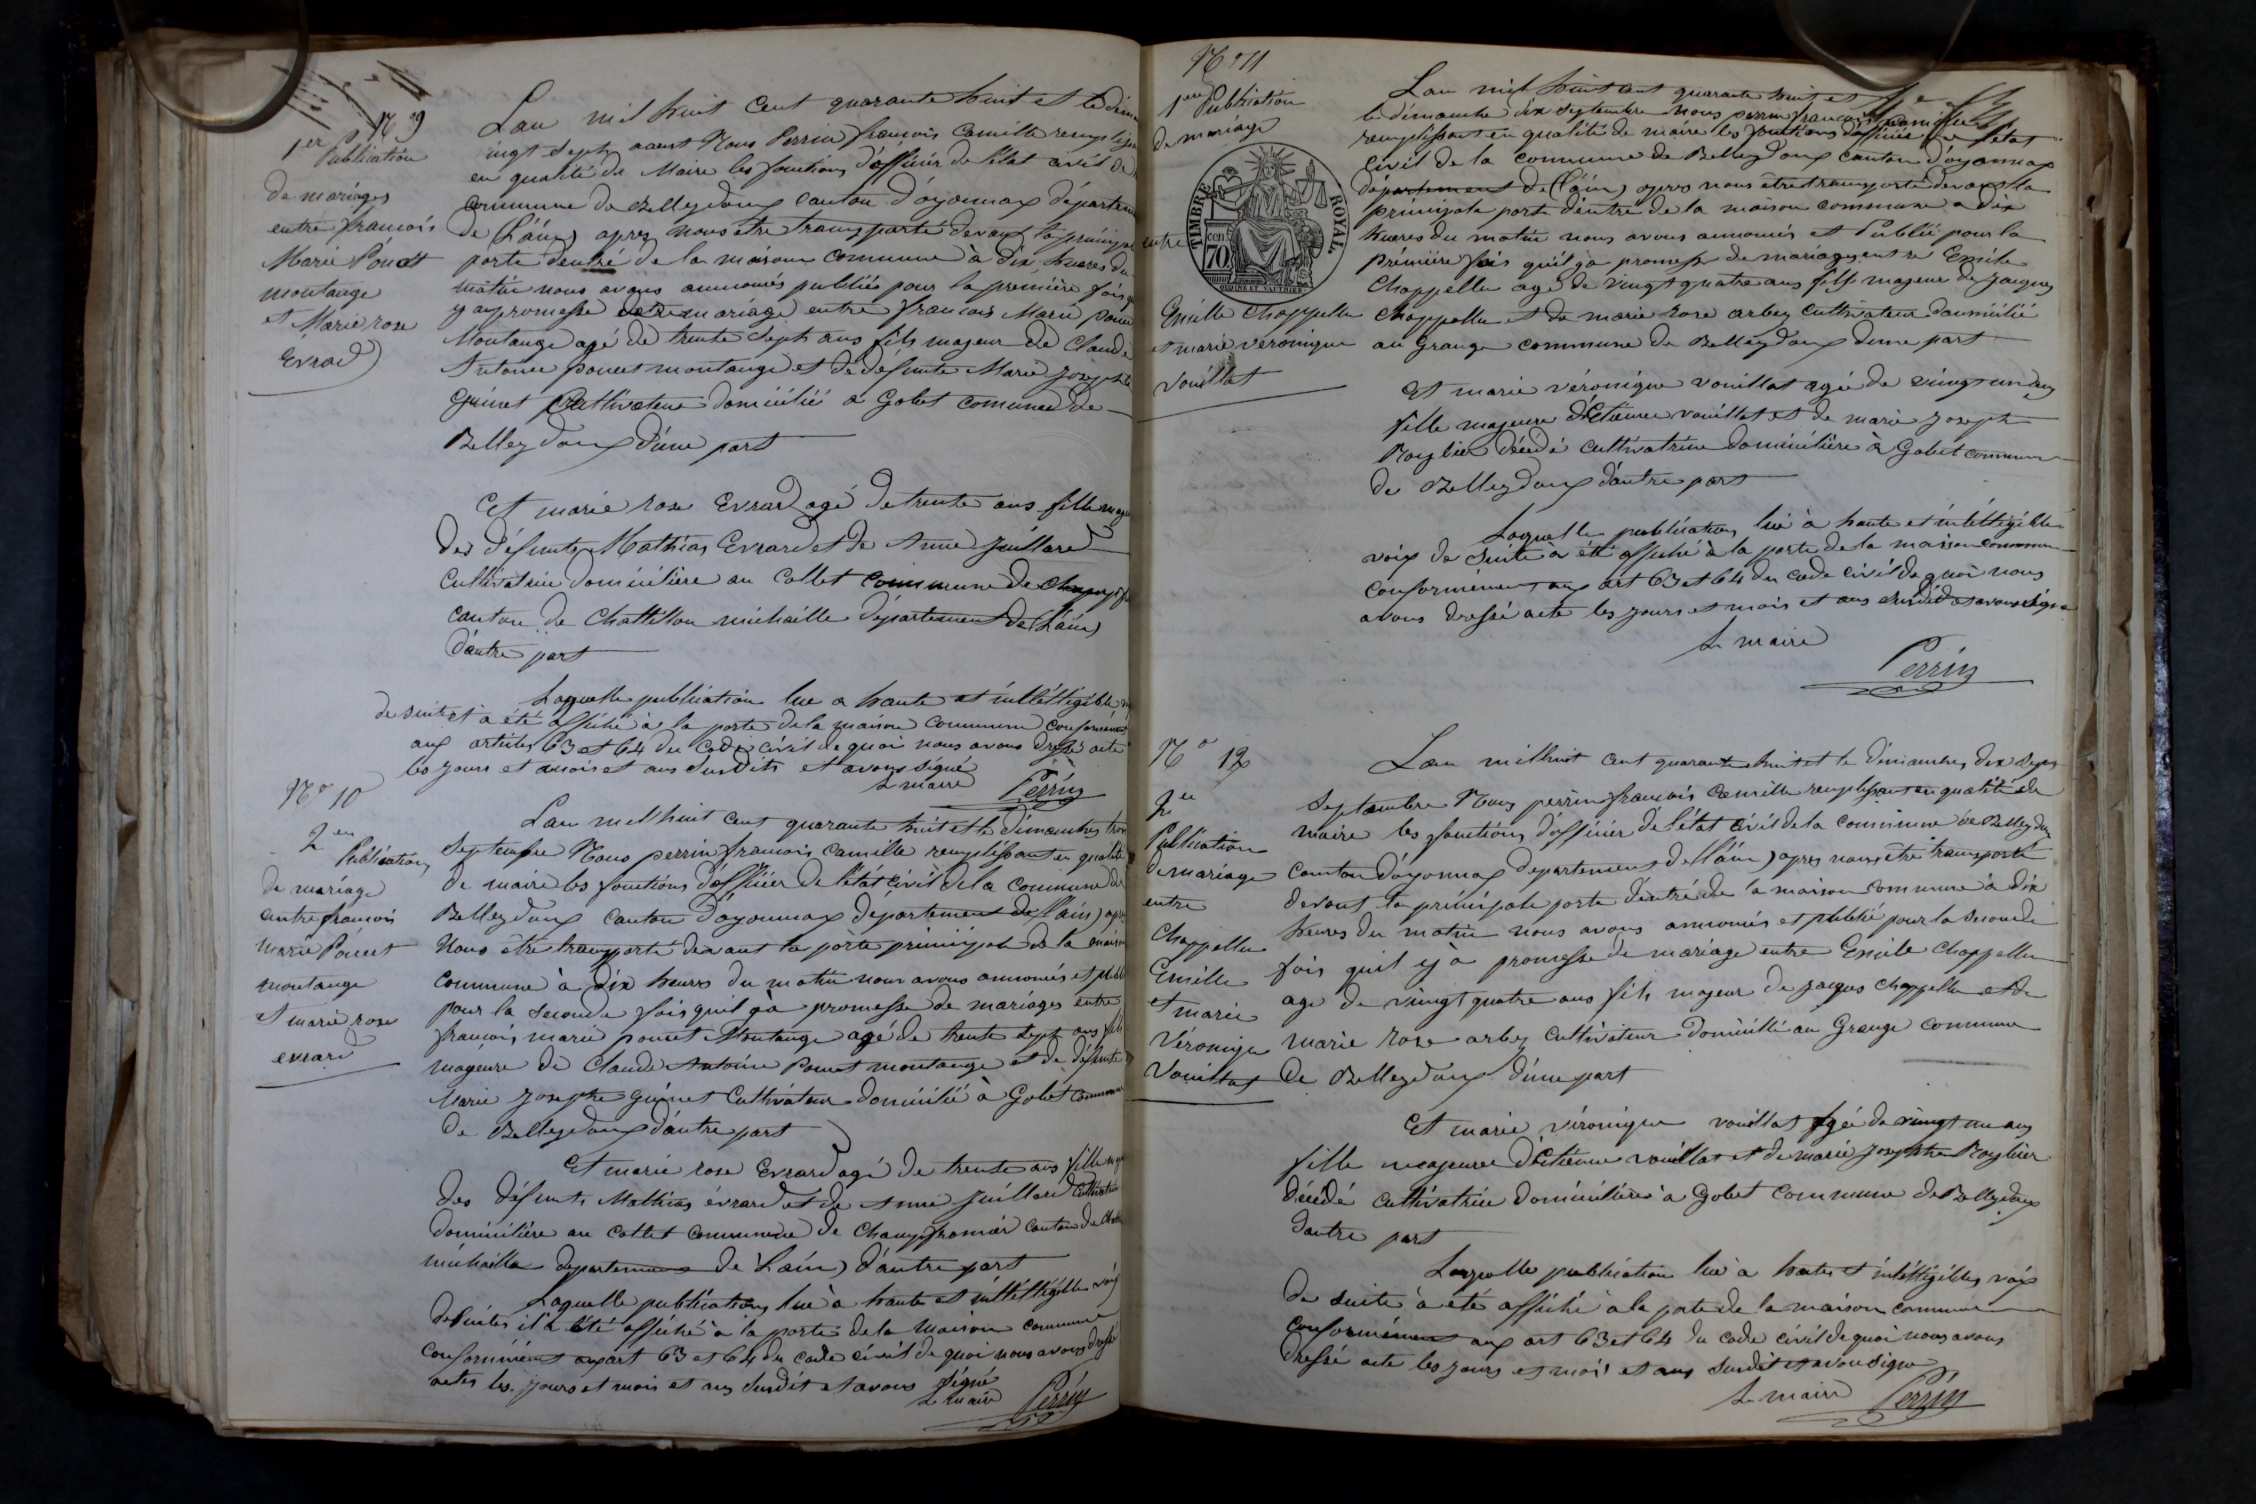 N° 9
1er Publication
de mariages
entre francois
Marie Poncet
montange
et Marie rose
Evrard
Lan mil huit cent quarante huit et le dim
vingt sept aout Nous Perrin francois Camille remplissan
en qualité de Maire les fonctions d'officier de l'état civil de
commune de Belleydoux canton d'oyonnax départem
de (l'ain) apres nous etre transporté devant la principal
porte dentré de la maison commune à dix heures du
matin nous avons annoncés publiés pour la premiére fois
y a promesse de mariage entre francois Marie poncet
Montange agé de trente sept ans fils majeur de Claude
Antoine poncet montange et de défunte Marie Josephte
Guinet Cultivateur domicilié a Gobet comune de
Belleydoux d'une part
Et marie rose Evrard agé de trente ans fille maj
des défunts Mathias Evrard et de Anne Juillard
Cultivatrice domicilière au Collet commune de Champf
canton de Chattillon michaille département de (Lain)
d'autre part
Laquelle publication lue a haute et intélligible
de suite et a été affiché à la porte de la maison commune conformément
aux articles 63 et 64 du Code civil de quoi nous avons dressé acte
les jours et mois et ans susdits et avons signé
Le maire Perrin
N° 10
2en
Publication
de mariage
entre francois
Marie Poncet
montange
et marie rose
evrard
Lan mil huit cent quarante huit et le dimanches trois
Septembre Nous perrin francois Camille remplissant en qualité
de maire les fonctions d'officier de l'état civil de la commune de
Belleydoux canton d'oyonnax département de l'ain) apres
Nous être transporté devant la porte principal de la maison
commune à dix heures du matin nous avons annoncés et publi
pour la seconde fois quil y à promesse de mariages entre
francois marie poncet Montange agé de trente sept ans fils
majeure de Claude Antoine Poncet montange et de défunte
Marie Josephte guinet Cultivateur domicilié à Gobet commune
de Belleydoux d'autre part
Et marie rose Evrard agé de trente ans fille maj
des défunts Mathias évrard et de Anne Juillard Cultivatrice
domicilière au collet commune de Champfromier canton de Chatt
michaille departement de Lain) d'autre part
Laquelle publication lue à haute et intélligible voix
de suites il a été affiché à la porte de la Maison commune
conformément aux art 63 et 64 du code civil de quoi nous avons dressé
actes les jours et mois et ans susdit et avons signé
Le maire Perrin
N° 11
1ere Publication
de mariage
entre
TIMBRE ROYAL
70 cen
Emille Chappellu
et marie véronique
Vouillat
Lan mil huit cent quarante huit et
le dimanche dix septembre nous perrin francois Camille
remplissant en qualité de maire les fonctions d'officier de l'état
Civil de la commune de Belleydoux canton d'oyonnax
departement de (l'ain) apres nous être transporté devant la
principale porte d'entré de la maison commune a dix
heures du matin nous avons annoncés et Publié pour la
Premiére fois quil y a promesse de mariages entre Emile
Chappellu agé de vingt quatre ans fils majeur de Jacques
Chappellu et de marie rose arbey Cultivateur domicilié
au Grange commune de Belleydoux dune part
Et marie véronique vouillat agé de vingt un ans
fille majeure d'Etienne vouillat et de marie Joseph
Roybier décédé cultivatrice domicilière à Gobet commune
de Belleydoux d'autre part
Laquelle publication lue à haute et intélligible
voix de suite à été affiché à la porte de la maison commune
conformément aux art 63 et 64 du code civil de quoi nous
avons dressé acte les jours et mois et ans susdits et avons signé
Le maire
Perrin
N° 12
2ee
Publication
de mariage
entre
Chappellu
Emille
et marie
Véronique
Vouillat
Lan mil huit cent quarante huit et le dimanches dix sept
Septembre Nous perrin francois Camille remplissant en qualité de
maire les fonctions d'officier de l'état civil de la commune de Belleydoux
canton d'oyonnax departement de (l'ain) apres nous être transporté
devant la principale porte d'entré de la maison commune à dix
heures du matin nous avons annoncés et publié pour la seconde
fois quil y à promesse de mariage entre Emile Chappellu
age de vingt quatre ans fils majeur de Jacques Chappellu et de
marie rose arbey cultivateur domicillié au Grange commune
De Belleydoux d'une part
Et marie véronique vouillat agée de vingt un ans
fille majeure d'étienne vouillat et de marie Josephte Roybier
décédé cultivatrice domicilière à Gobet commune de Belleydoux
dautre part
Laquelle publication lue à hautes et intélligibles voix
de suite à été affiché à la porte de la maison commune
conformément aux art 63 et 64 du code civil de quoi nous avons
dressé acte les jours et moi et ans susdit et avons signé
Le maire Perrin